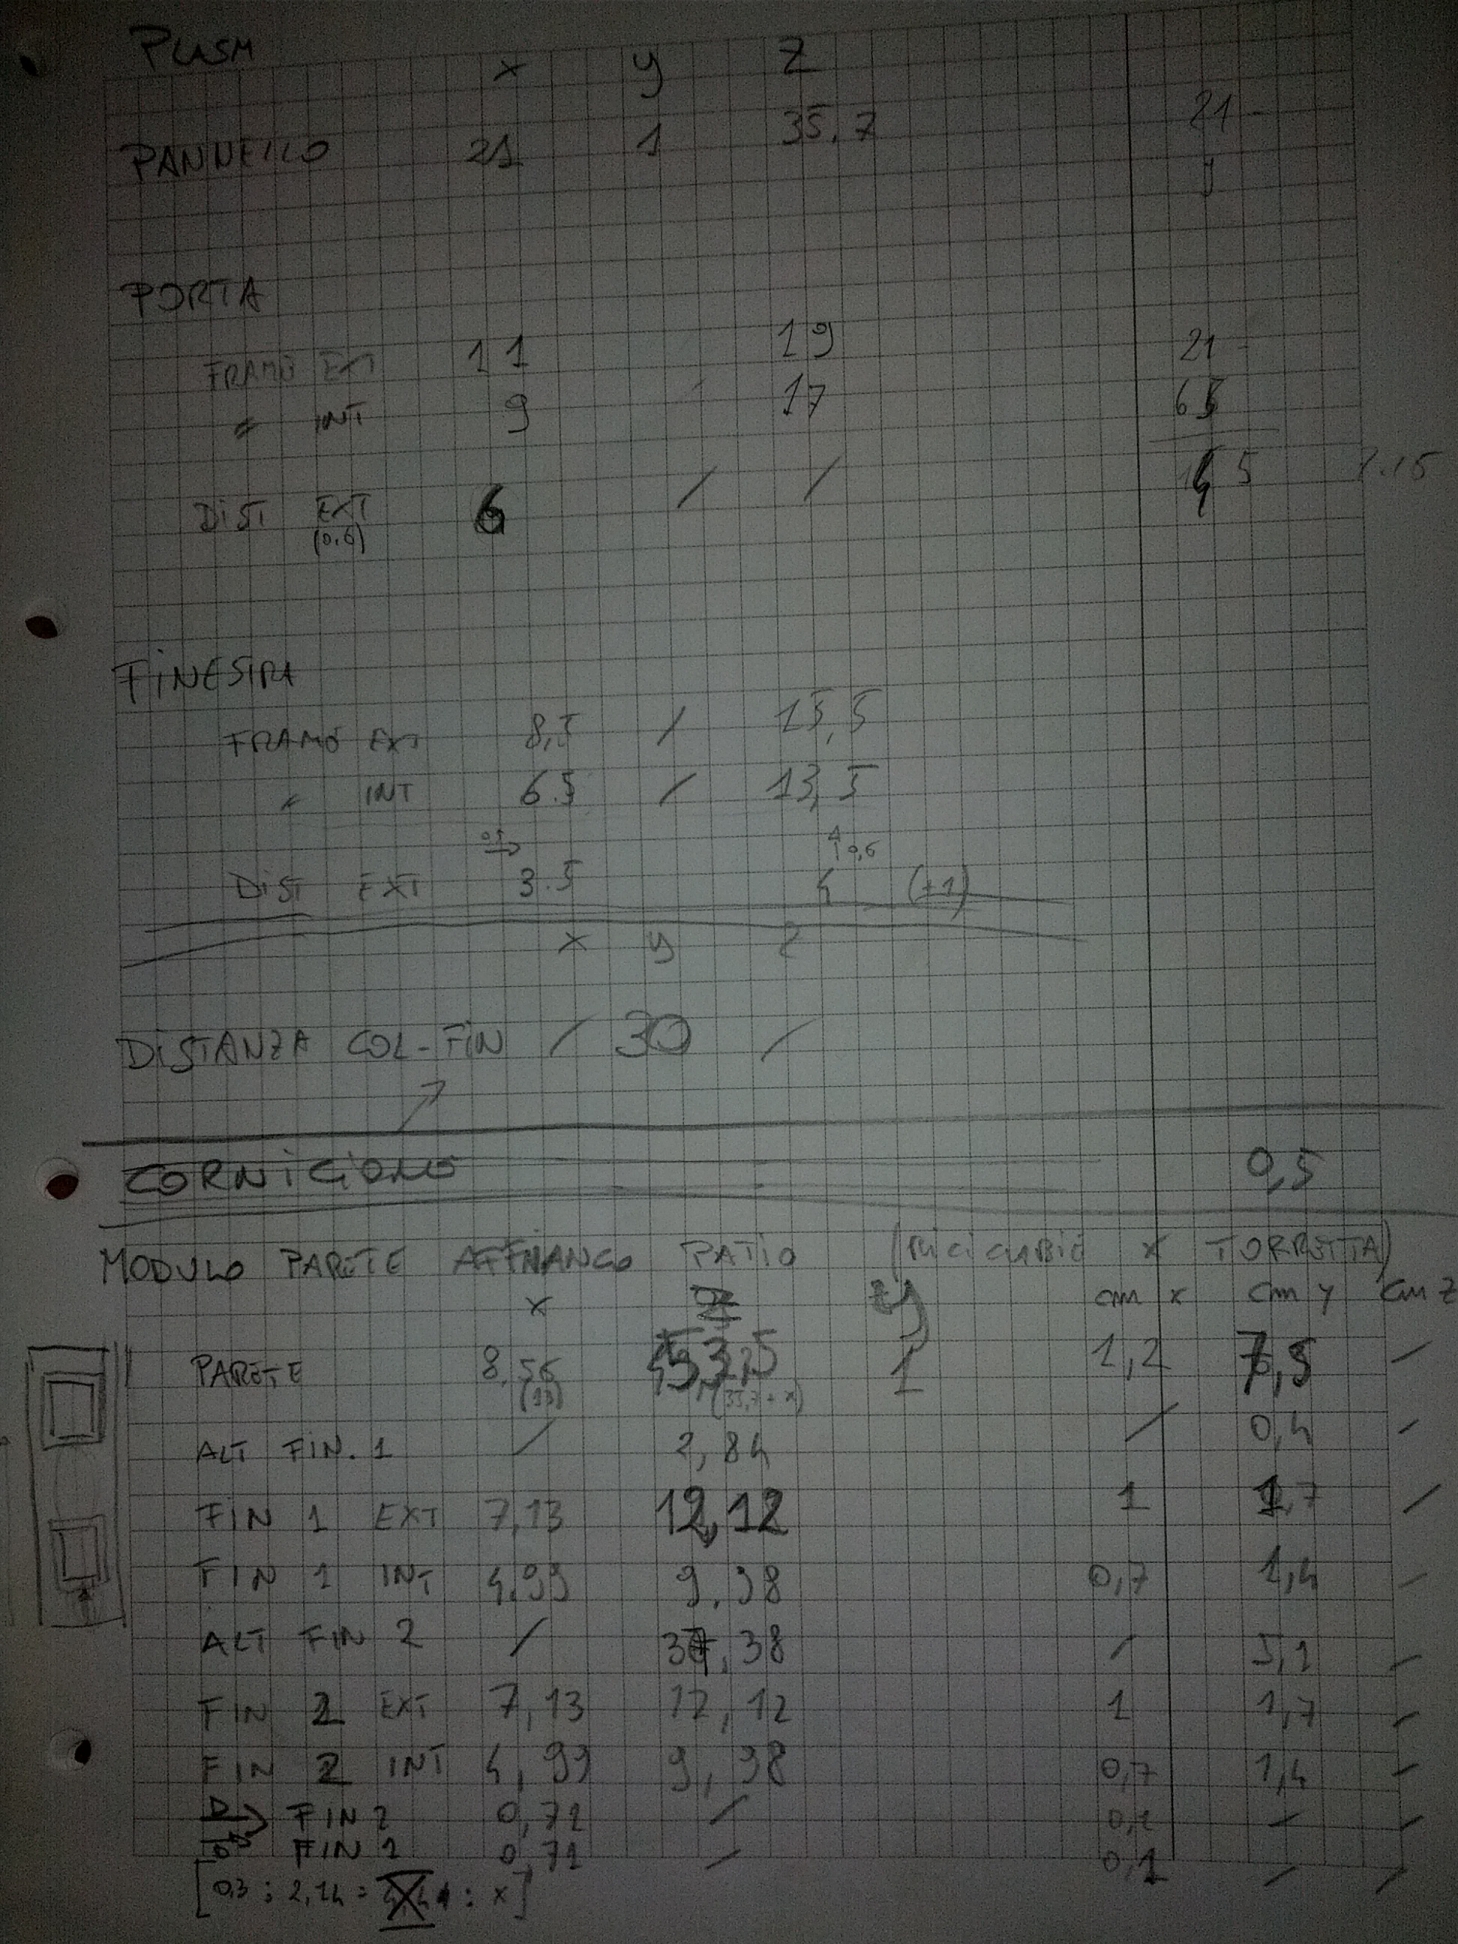 PUSM x y z
PANNELLO 21 1 35.7 21 -
PORTA
FRAME EXT 11 19 21 -
" INT 9 17 6
DIST EXT 6 / / 5
(0.6)
FINESTRA
FRAME EXT 8,5 / 15,5
" INT 6.5 / 13,5
0,5 → ↑ 0,6
DIST EXT 3.5 4 (+1)
x y z
DISTANZA COL-FIN / 30 /
CORNICIONE 0,5
MODULO PARETE AFFIANCO PATIO ( x TORRETTA)
x y cm x cm y cm z
PARETE 8,56 53,5 1 1,2 7,5 /
(13) (35,7 + x)
ALT FIN. 1 / 2,84 / 0,4 /
FIN 1 EXT 7,13 12,12 1 1,7 /
FIN 1 INT 4,99 9,98 0,7 1,4 /
ALT FIN 2 / 37,38 / 5,1 /
FIN 2 EXT 7,13 12,12 1 1,7 /
FIN 2 INT 4,99 9,98 0,7 1,4 /
D → FIN 2 0,71 / 0,1 / /
D → FIN 1 0,71 / 0,1 / /
[0,3 : 2,14 = : x]